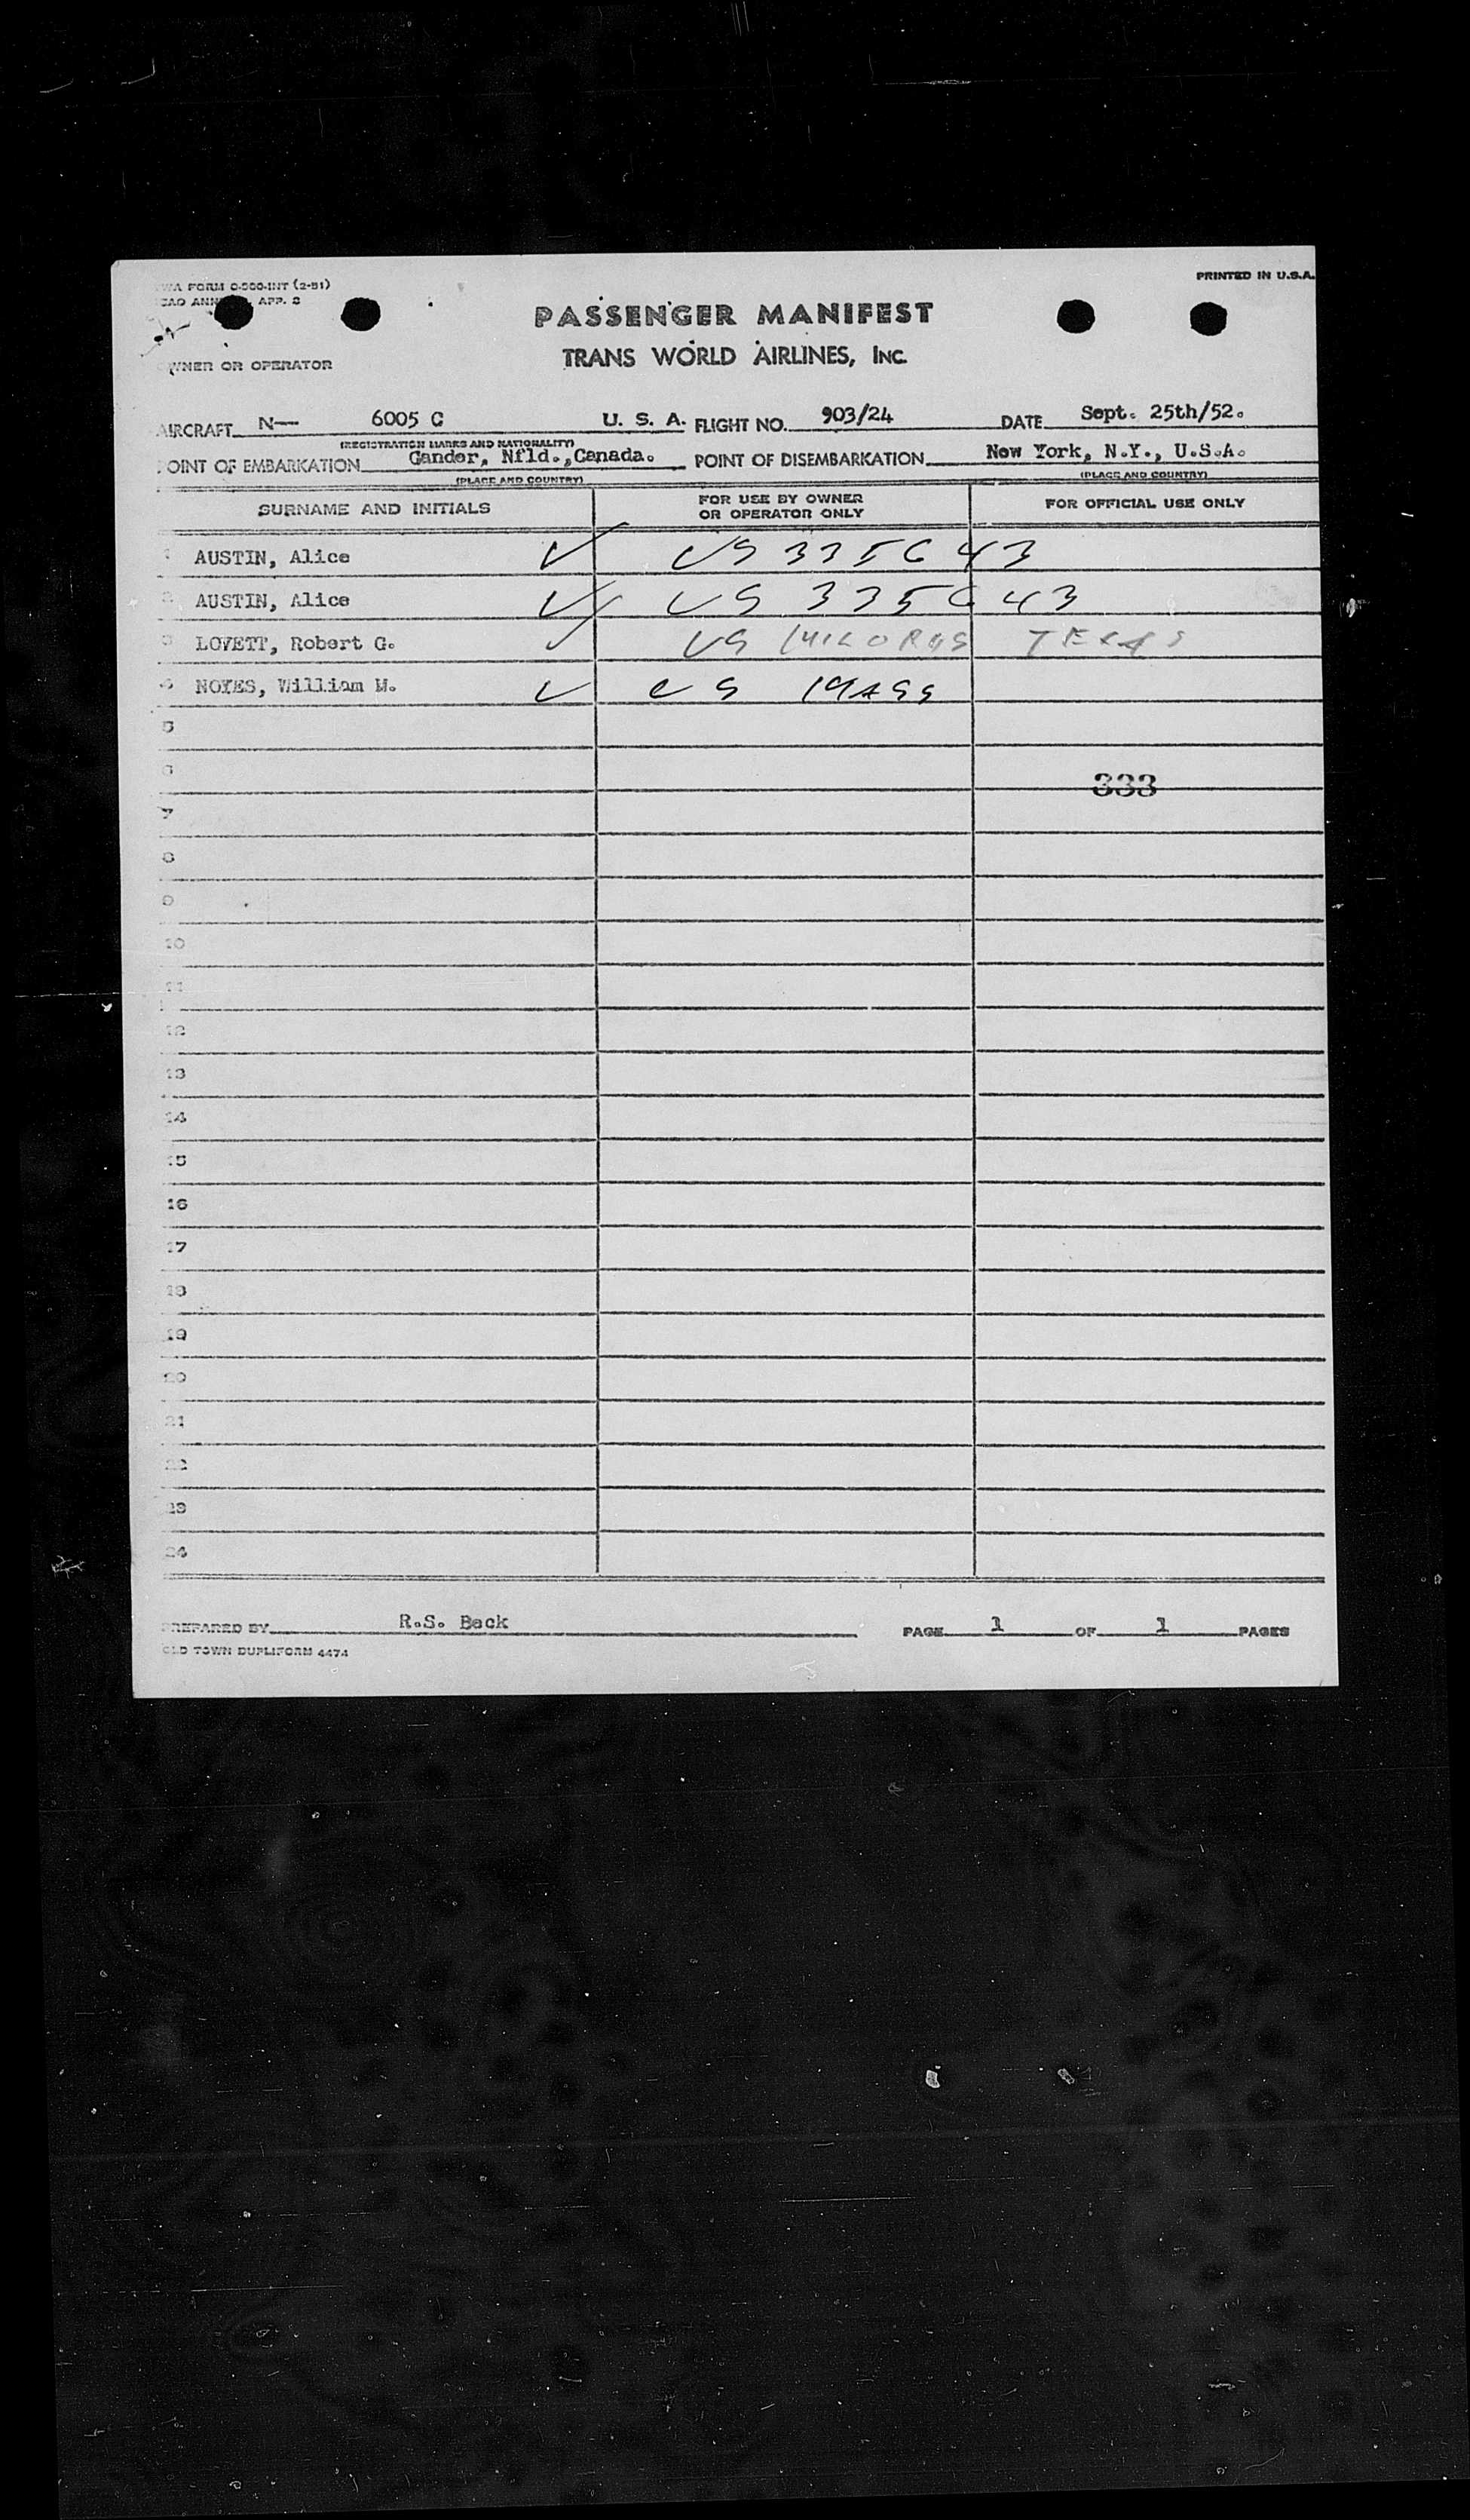 TWA FORM O-300-INT (2-51)
ICAO ANNEX APP. 3
PRINTED IN U.S.A.
PASSENGER MANIFEST
TRANS WORLD AIRLINES, INC.
OWNER OR OPERATOR
AIRCRAFT N— 6005 C U. S. A. FLIGHT NO. 903/24 DATE Sept. 25th/52.
(REGISTRATION MARKS AND NATIONALITY)
POINT OF EMBARKATION Gander, Nfld.,Canada. POINT OF DISEMBARKATION New York, N.Y., U.S.A.
(PLACE AND COUNTRY) (PLACE AND COUNTRY)
SURNAME AND INITIALS FOR USE BY OWNER OR OPERATOR ONLY FOR OFFICIAL USE ONLY
1 AUSTIN, Alice ✓ US 335643
2 AUSTIN, Alice ✓ US 335643
3 LOVETT, Robert G. ✓ US TEXAS
4 NOYES, William M. ✓ US MASS
5
6 333
7
8
9
10
11
12
13
14
15
16
17
18
19
20
21
22
23
24
PREPARED BY R.S. Beck PAGE 1 OF 1 PAGES
OLD TOWN DUPLIFORM 4474